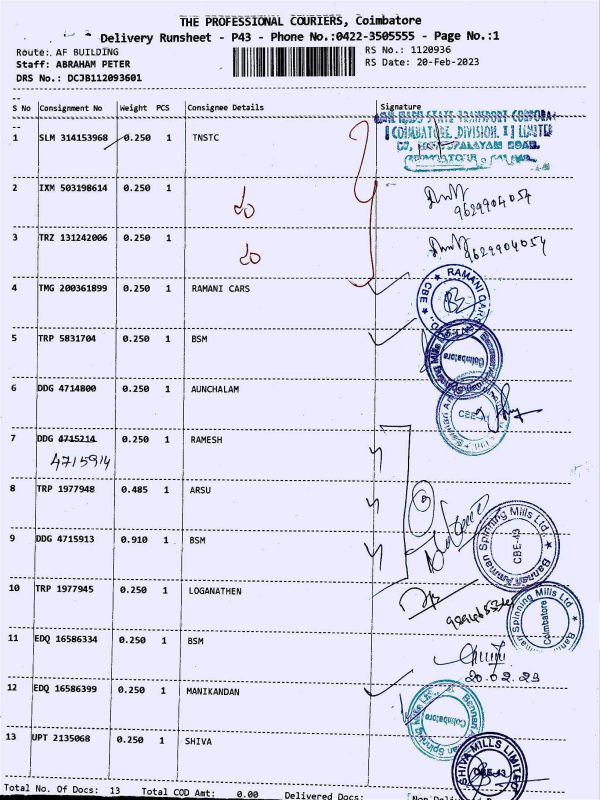 THE PROFESSIONAL COURIERS, Coimbatore
Delivery Runsheet - P43 - Phone No.:0422-3505555 - Page No.:1
Route: AF BUILDING RS No.: 1120936
Staff: ABRAHAM PETER RS Date: 20-Feb-2023
DRS No.: DCJB112093601
S No Consignment No Weight PCS Consignee Details Signature
1 SLM 314153968 0.250 1 TNSTC
STATE TRANSPORT CORPORA
COIMBATORE DIVISION I LIMITED
2 IXM 503198614 0.250 1 9629904054
3 TRZ 131242006 0.250 1 9629904054
4 TMG 200361899 0.250 1 RAMANI CARS
RAMANI CARS CBE
5 TRP 5831704 0.250 1 BSM
Coimbatore
6 DDG 4714800 0.250 1 AUNCHALAM
7 DDG 4715214 0.250 1 RAMESH
4715914
8 TRP 1977948 0.485 1 ARSU
9 DDG 4715913 0.910 1 BSM
Bannari Amman Spinning Mills Ltd
CBE-43
10 TRP 1977945 0.250 1 LOGANATHEN
Spinning Mills Ltd
Coimbatore
11 EDQ 16586334 0.250 1 BSM
20.02.23
12 EDQ 16586399 0.250 1 MANIKANDAN
Coimbatore
13 UPT 2135068 0.250 1 SHIVA
SHIVA MILLS LIMITED
CBE-43
Total No. Of Docs: 13 Total COD Amt: 0.00 Delivered Docs: